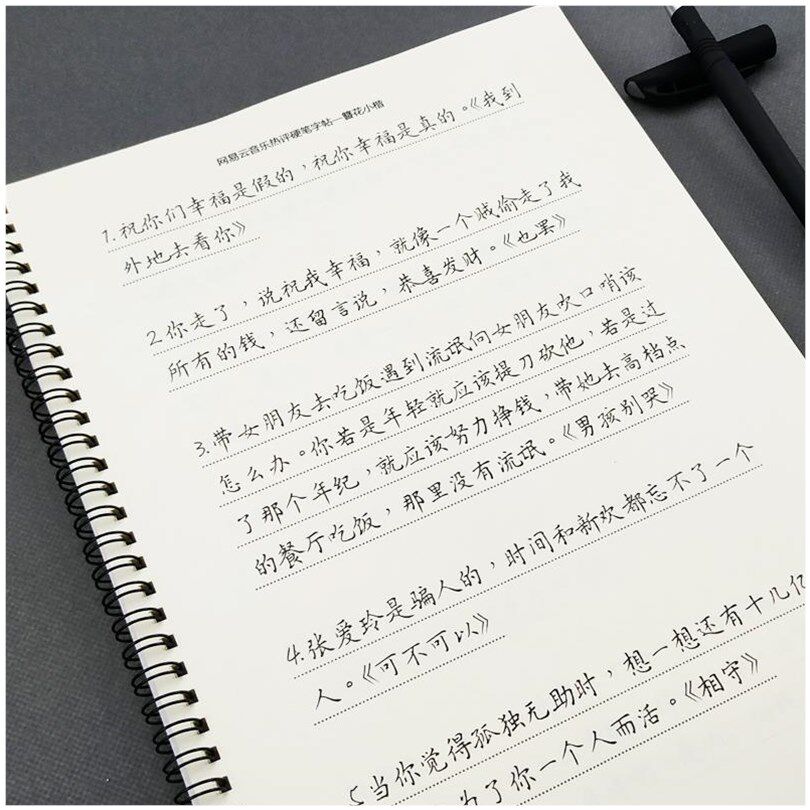 网易云音乐热评硬笔字帖—簪花小楷
1.祝你们幸福是假的，祝你幸福是真的。《我到
外地去看你》
2.你走了，说祝我幸福，就像一个贼偷走了我
所有的钱，还留言说，恭喜发财。《也罢》
3.带女朋友去吃饭遇到流氓向女朋友吹口哨该
怎么办。你若是年轻就应该提刀砍他，若是过
了那个年纪，就应该努力挣钱，带她去高档点
的餐厅吃饭，那里没有流氓。《男孩别哭》
4.张爱玲是骗人的，时间和新欢都忘不了一个
人。《可不可以》
5当你觉得孤独无助时，想一想还有十几亿
为了你一个人而活。《相守》